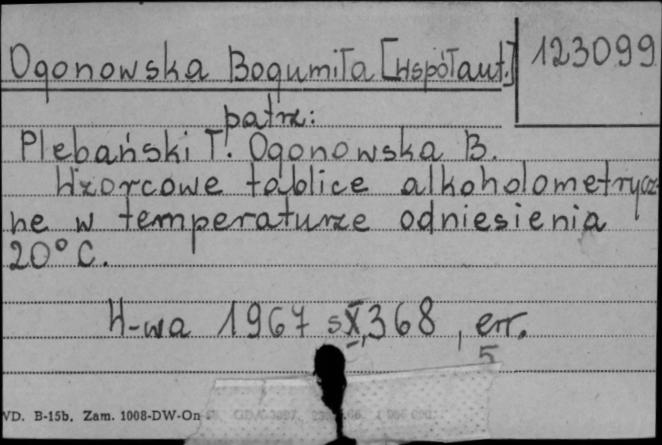 Ogonowska Bogumiła [współaut.] 123099
patrz:
Plebański T. Ogonowska B.
Wzorcowe tablice alkoholometrycz
ne w temperaturze odniesienia
20° C.
W-wa 1967 s X, 368, err.
5
WD. B-15b. Zam. 1008-DW-On